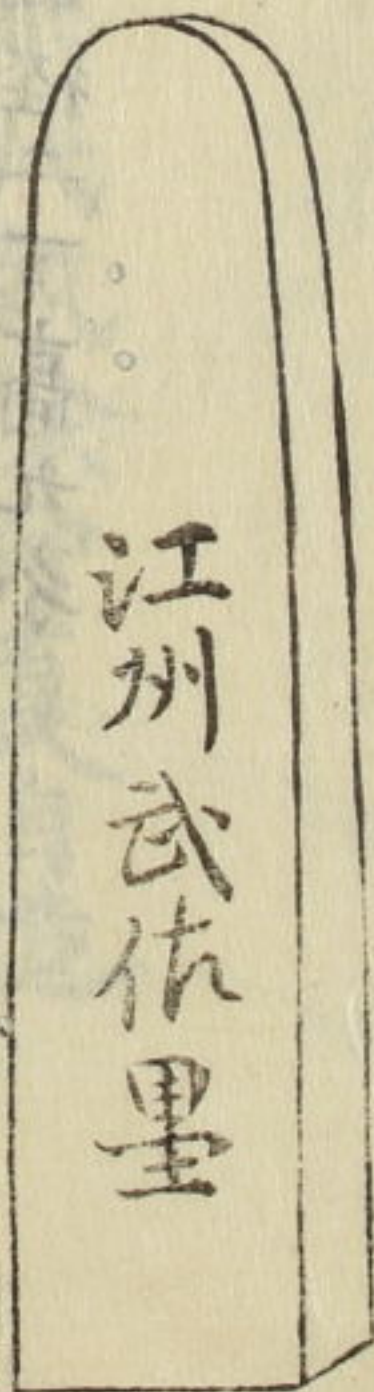 江州武佐墨